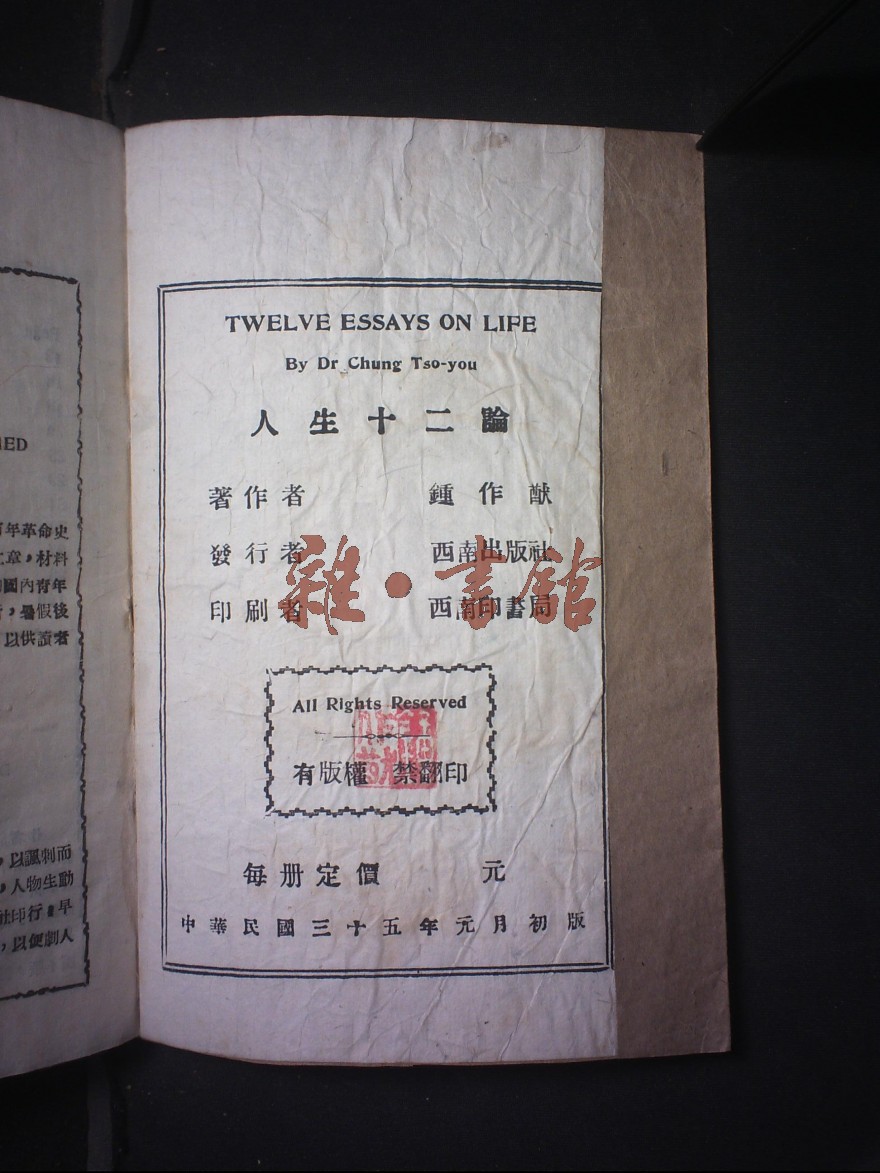 TWELVE ESSAYS ON LIFE
By Dr Chung Tso-you
人生十二論
著作者 鍾作猷
發行者 西南出版社
印刷者 西南印書局
雜·書館
All Rights Reserved
有版權 禁翻印
每册定價 元
中華民國三十五年元月初版
年革命史
章，材料
國內青年
，暑假後
以供讀者
，以諷刺而
，人物生動
社印行。早
，以便劇人